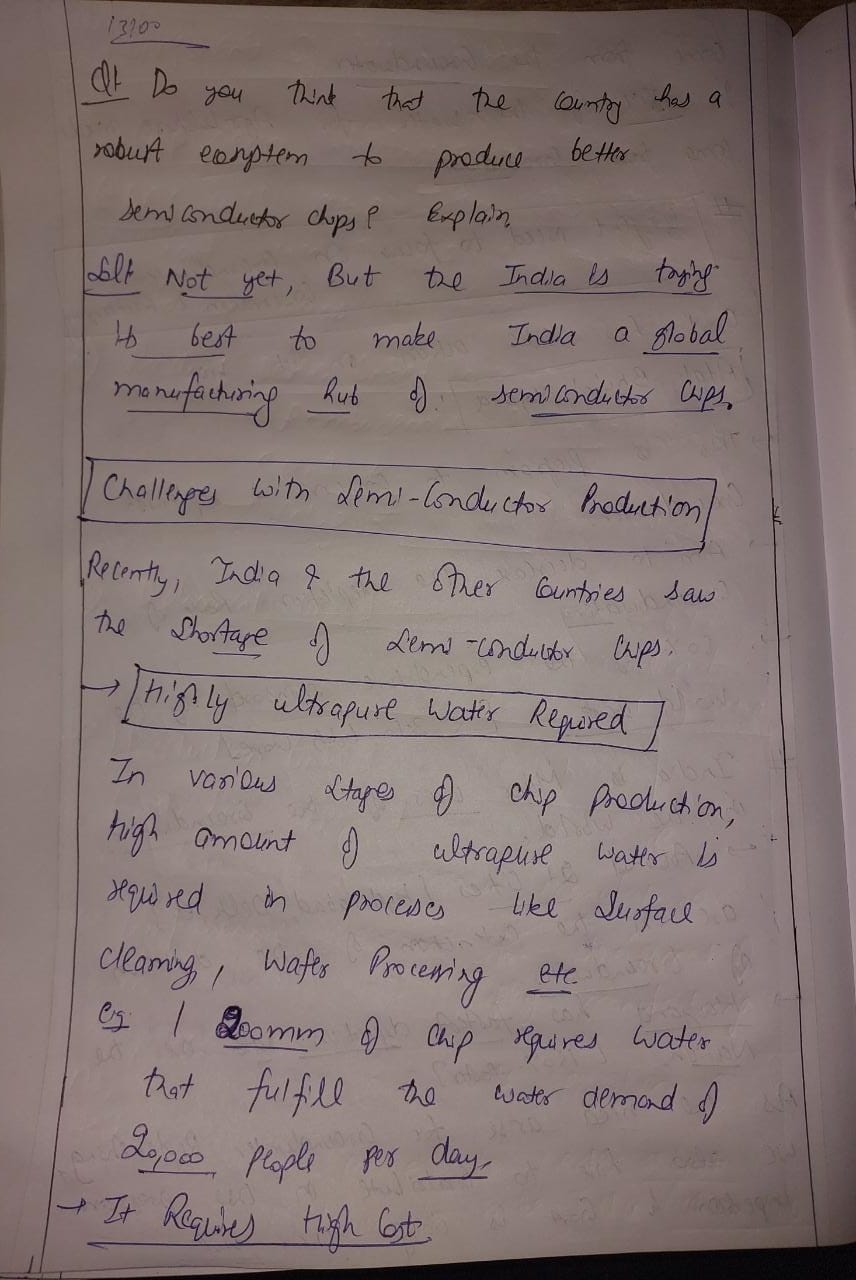 13100
Q1 Do you think that the country has a
robust ecosystem to produce better
semiconductor chips? Explain
Sol: Not yet, But the India is trying
its best to make India a global
manufacturing hub of semiconductor chips.
Challenges with Semi-Conductor Production
Recently, India & the other countries saw
the shortage of Semi-conductor chips.
→ Highly ultrapure Water Required
In various stages of chip production,
high amount of ultrapure water is
required in processes like Surface
cleaning, Wafer Processing etc
eg 1 200mm of chip requires water
that fulfill the water demand of
20,000 people per day.
→ It Requires High Cost.